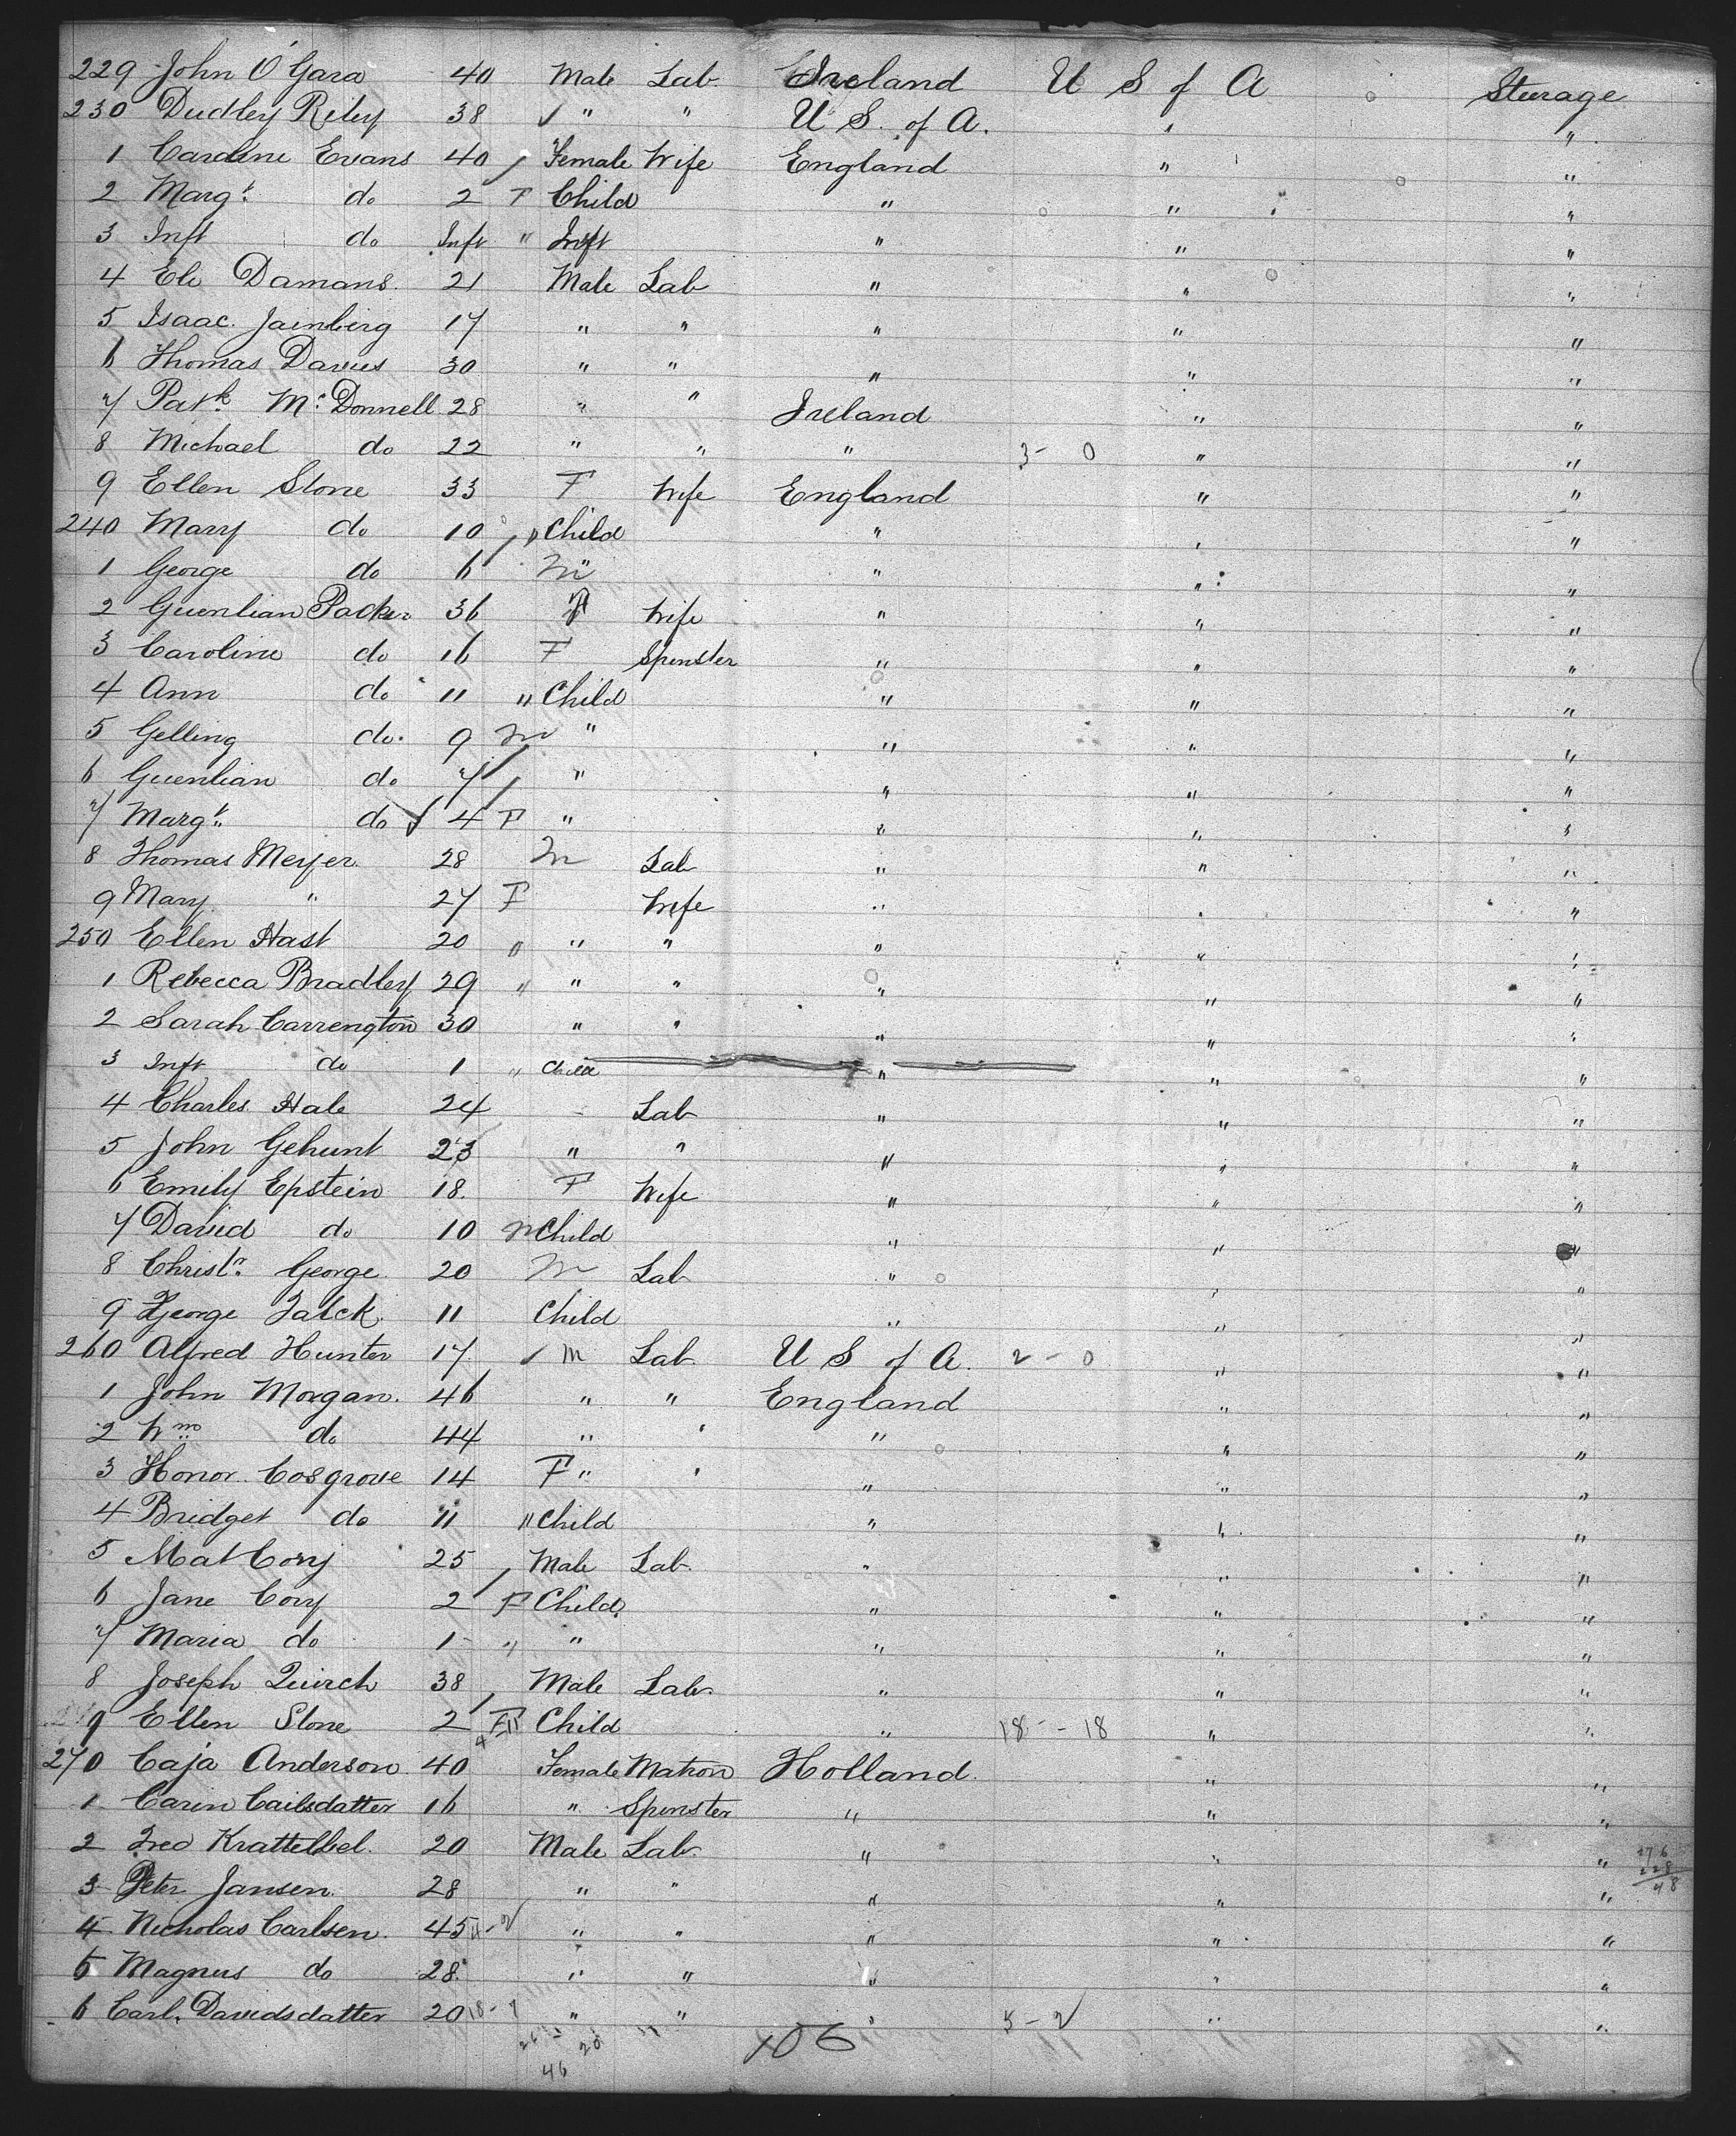 229 John O'Gara 40 Male Lab Ireland U S of A Sturage
230 Dudley Reley 38 " " U S. of A. " "
1 Caroline Evans 40 Female Wife England " "
2 Margt do 2 F Child " " "
3 Inft do Inft " Inft " " "
4 Eli Damans. 21 Male Lab " " "
5 Isaac. Jainberg 17 " " " " "
6 Thomas Davies 30 " " " " "
7 Patk. Mc Donnell 28 " " Ireland " "
8 Michael do 22 " " " 3- 0 " "
9 Ellen Stone 33 F Wife England " "
240 Mary do 10 " Child " " "
1 George do 6 M " " " "
2 Guenlian Packer 36 F Wife " " "
3 Caroline do 16 F Spinster " " "
4 Ann do 11 " Child " " "
5 Gelling do. 9 M " " " "
6 Guenlian do 7 " " " "
7 Margt. do 4 F " " " "
8 Thomas Meyer. 28 M Lab " " "
9 Mary " 27 F Wife " " "
250 Ellen Hast 20 " " " " " "
1 Rebecca Bradley 29 " " " " " "
2 Sarah Carrengton 30 " " " " "
3 Inft do 1 " Child " " "
4 Charles Hale 24 Lab " " "
5 John Gehunt 23 " " " " "
6 Emily Epstein 18. F Wife " " "
7 David do 10 M Child " " "
8 Christr. George 20 M Lab " " "
9 George Talck. 11 Child " " "
260 Alfred Hunter 17. M Lab U S of A. 2 - 0 " "
1 John Morgan. 46 " " England " "
2 Wm do 44 " " " " "
3 Honor. Cosgrove 14 F " " " " "
4 Bridget do 11 " Child " " "
5 Mat Cory 25 Male Lab. " " "
6 Jane Cory 2 F Child. " " "
7 Maria do 1 " " " " "
8 Joseph Quirch 38 Male Lab. " " "
9 Ellen Stone 2 F Child " 18 - - 18 " "
270 Caja Anderson. 40 Female Matron Holland. " "
1 Carin Cailsdatter 16 " Spinster " " "
2 Fred Krattelbel. 20 Male Lab. " " " 276
3 Peter Jansen. 28 " " " " " 228
48
4 Nicholas Carlsen. 45 " " " " "
5 Magnus do 28. " " " " "
6 Carl. Davidsdatter 20 18-7 " " " 5 - 2 " "
106
46